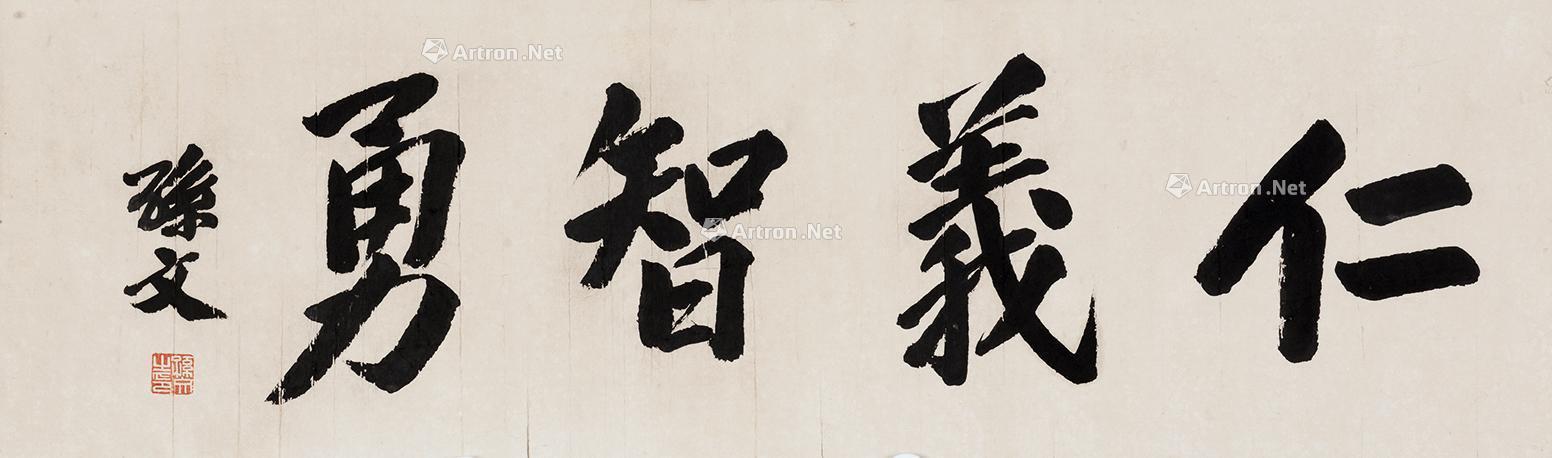 仁義智勇
孫文
孫文之印
Artron.Net
Artron.Net
Artron.Net